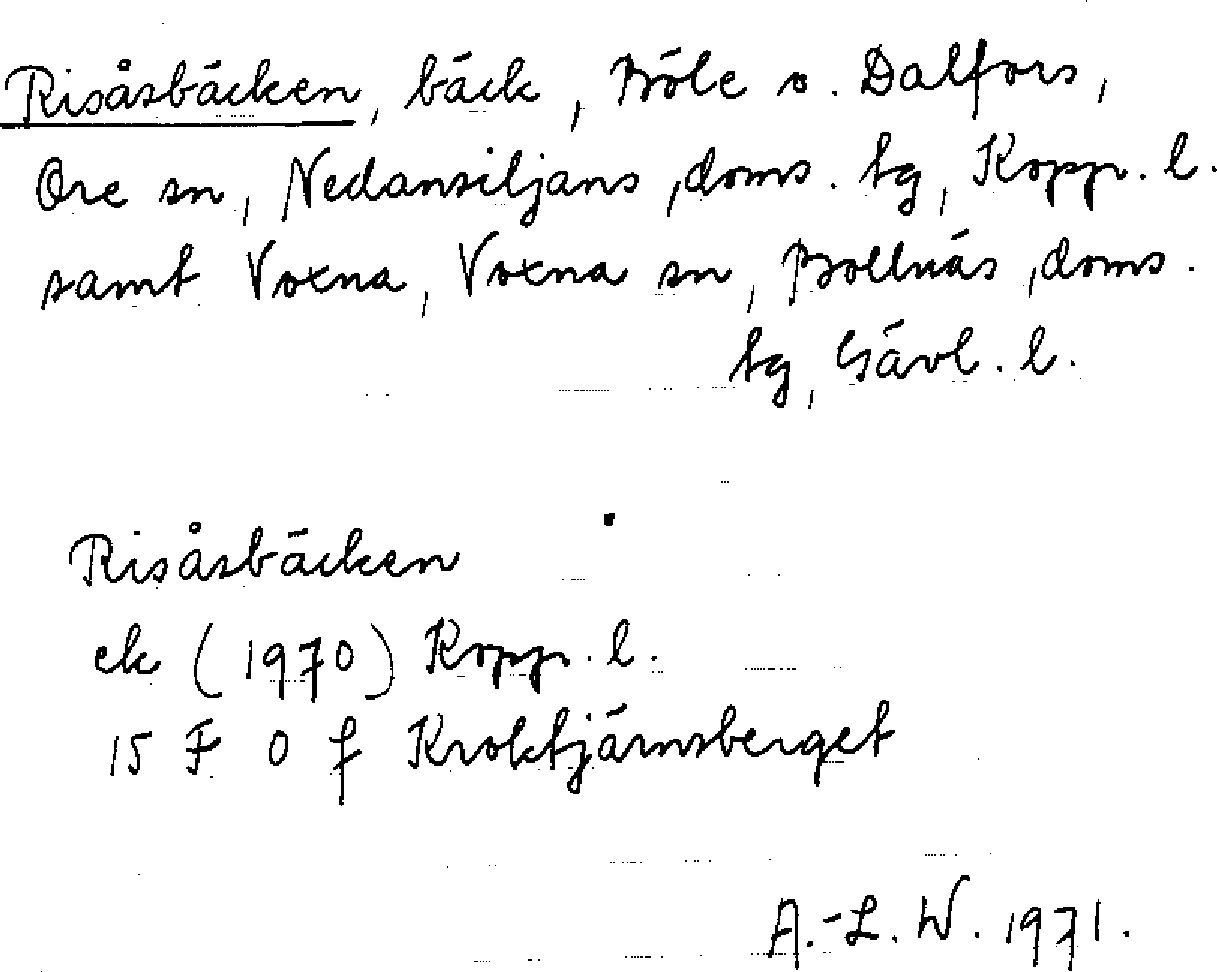 Risåsbäcken, bäck, Böle o. Dalfors,
Ore sn, Nedansiljans doms. tg, Kopp. l.
samt Voxna, Voxna sn, Bollnäs doms.
tg, Gävl. l.
Risåsbäcken
ek (1970) Kopp. l.
15 F 0 f Kroktjärnsberget
A.-L. W. 1971.